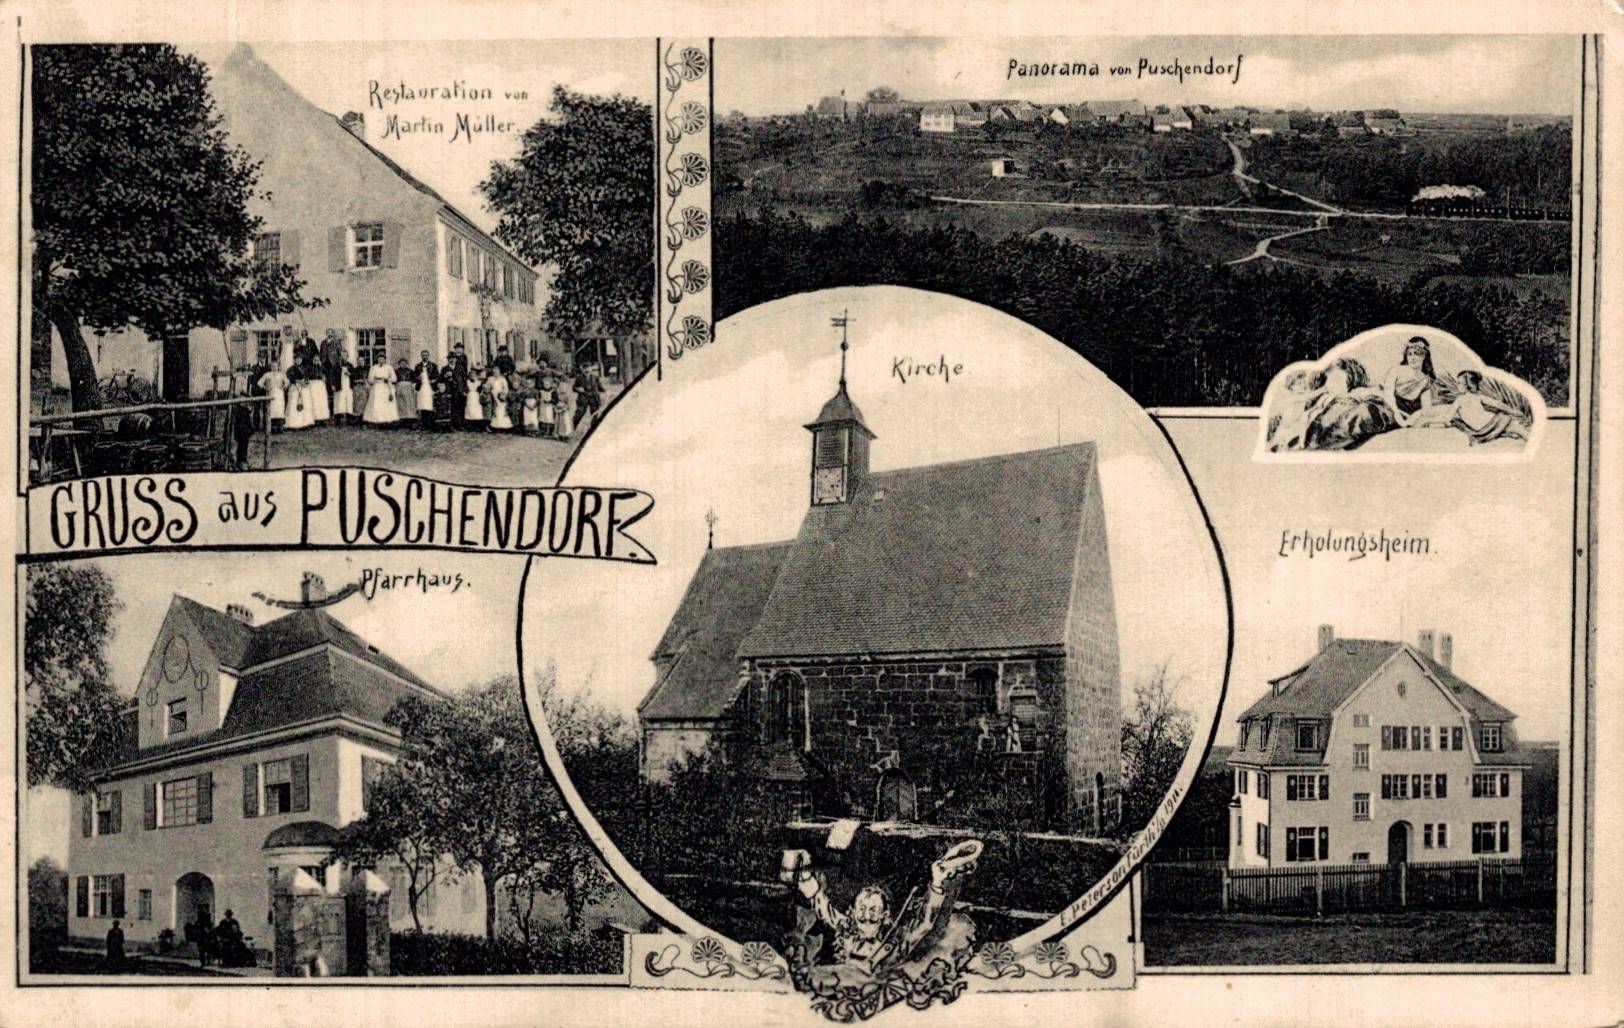 Restauration von
Martin Müller.
Panorama von Puschendorf
Kirche.
GRUSS aus PUSCHENDORF.
Pfarrhaus.
Erholungsheim.
E. Peterson Fürth i/B 1911.